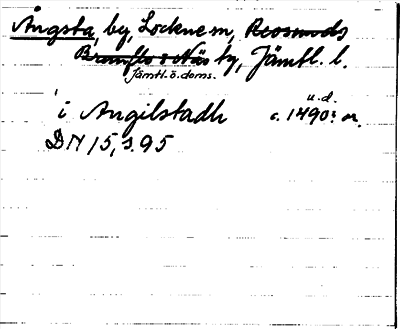 Ångsta, by, Lockne sn, Revsunds
Brunflo o Näs tg, Jämtl. l.
Jämtl. ö. doms.
i Angilstadh c. 1490: u.d. or.
DN 15, s. 95